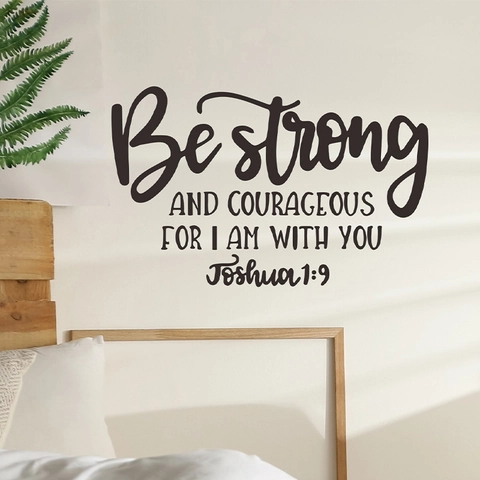 Be strong
AND COURAGEOUS
FOR I AM WITH YOU
Joshua 1:9